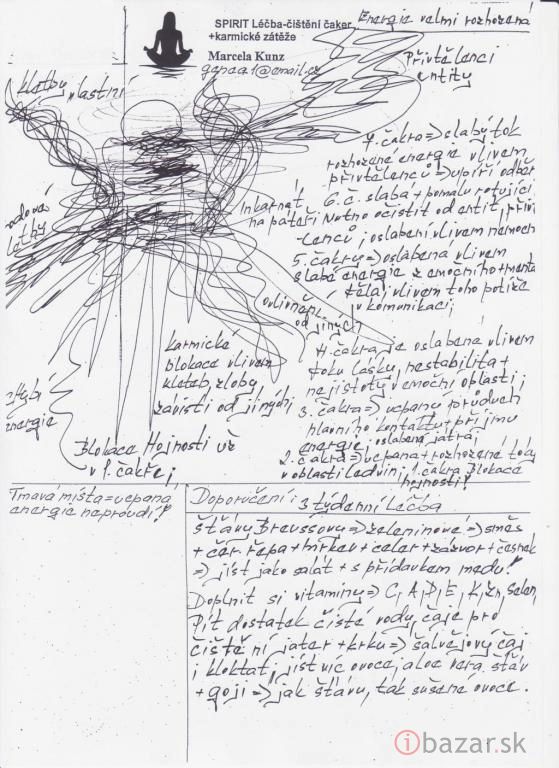 SPIRIT Léčba-čištění čaker
+karmické zátěže
Marcela Kunz
Energie velmi rozhozená
Přivtělenci
entity
kletby
vlastní
7. čakra => slabý tok
rozhozené energie vlivem
přivtělenců => upíří odběr
Inkarnát 6. č. slabá + pomalu rotující
na páteři nutno očistit od entit, přivtě-
lenců, oslabení vlivem nemoch
5. čakru => oslabená vlivem
slabé energie z emočního + menta
těla, vlivem toho potíže
v komunikaci,
rodové
kletby
ovlivnění
od jiných
4. čakra je oslabena vlivem
toku lásky, nestabilita +
nejistoty v emoční oblasti,
3. čakra => ucpaný průduch
hlavního kontaktu + příjmu
energie, oslabená játra,
2. čakra => ucpaná + rozhozené
v oblasti ledvin, 1. čakra Blokace
hojnosti!
karmické
blokace vlivem
kleteb, zloby,
závisti od jiných,
chybí
energie
Blokace Hojnosti už
v 1. čakře,
Tmavá místa = ucpaná
energie neproudí!
Doporučení: 3 týdenní Léčba
Šťávy Breussovy => zeleninové => směs
+ čer. řepa + mrkev + celer + zázvor + česnek
=> jíst jako salát + s přídavkem medu!
Doplnit si vitamíny => C, A, D, E, K, Zn, Selen,
Pít dostatek čisté vody, čaje pro
čištění jater + krku => šalvějový čaj
i kloktat, jíst víc ovoce, aloe vera šťáv
+ goji => jak šťávu, tak sušené ovoce.
ibazar.sk